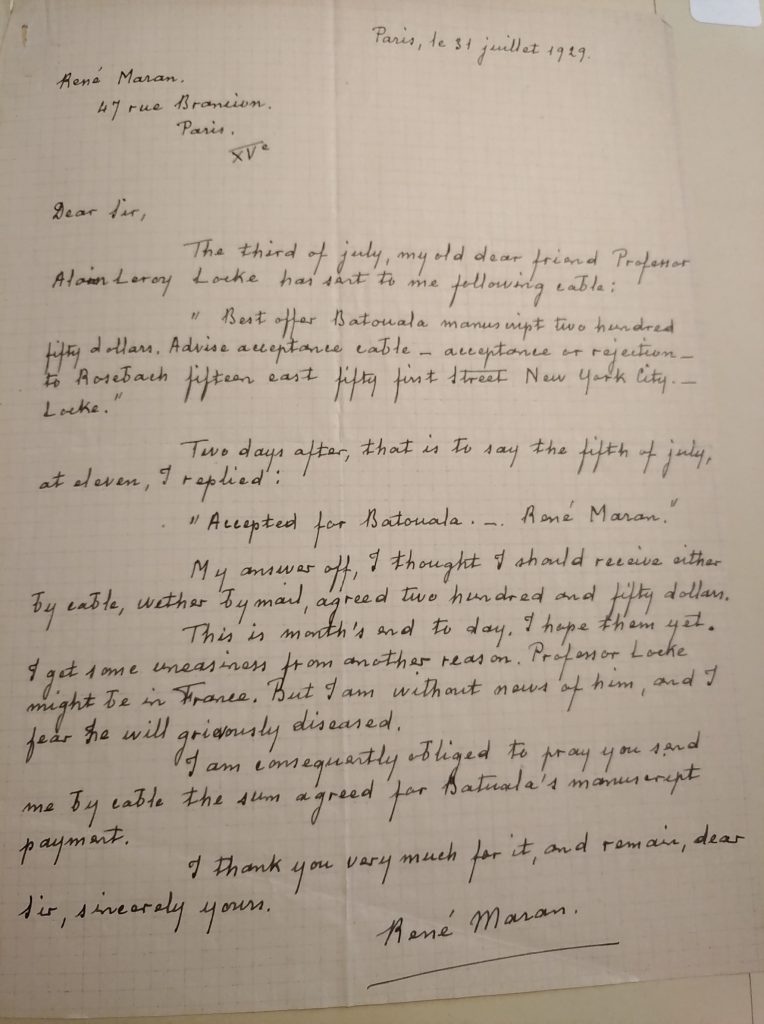 Paris, le 31 juillet 1929.
René Maran.
47 rue Brancion.
Paris.
XVe
Dear Sir,
The third of july, my old dear friend Professor
Alain Leroy Locke has sent to me following cable:
" Best offer Batouala manuscript two hundred
fifty dollars. Advise acceptance cable – acceptance or rejection –
to Rosebach fifteen east fifty first Street New York City. –
Locke."
Two days after, that is to say the fifth of july,
at eleven, I replied:
"Accepted for Batouala. –. René Maran."
My answer off, I thought I should receive either
by cable, wether by mail, agreed two hundred and fifty dollars.
This is month's end to day. I hope them yet.
I get some uneasiness from another reason. Professor Locke
might be in France. But I am without news of him, and I
fear he will grievously diseased.
I am consequently obliged to pray you send
me by cable the sum agreed for Batuala's manuscript
payment.
I thank you very much for it, and remain, dear
Sir, sincerely yours.
René Maran.